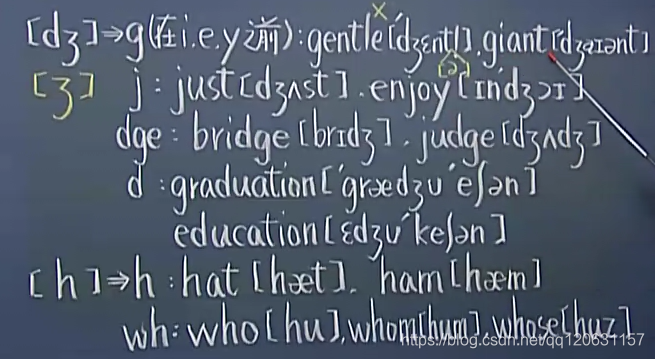 [dʒ]⇒g(在i.e.y之前):gentle[ˈdʒɛntl̩].giant[dʒaɪənt]
×
[ə]
[ʒ] j:just[dʒʌst].enjoy[ɪnˈdʒɔɪ]
dge:bridge[brɪdʒ].judge[dʒʌdʒ]
d:graduation[ˈgrædʒʊˈeʃən]
education[ɛdʒʊˈkeʃən]
[h]⇒h:hat[hæt]. ham[hæm]
wh:who[hu],whom[hum].whose[huz]
https://blog.csdn.net/qq120631157